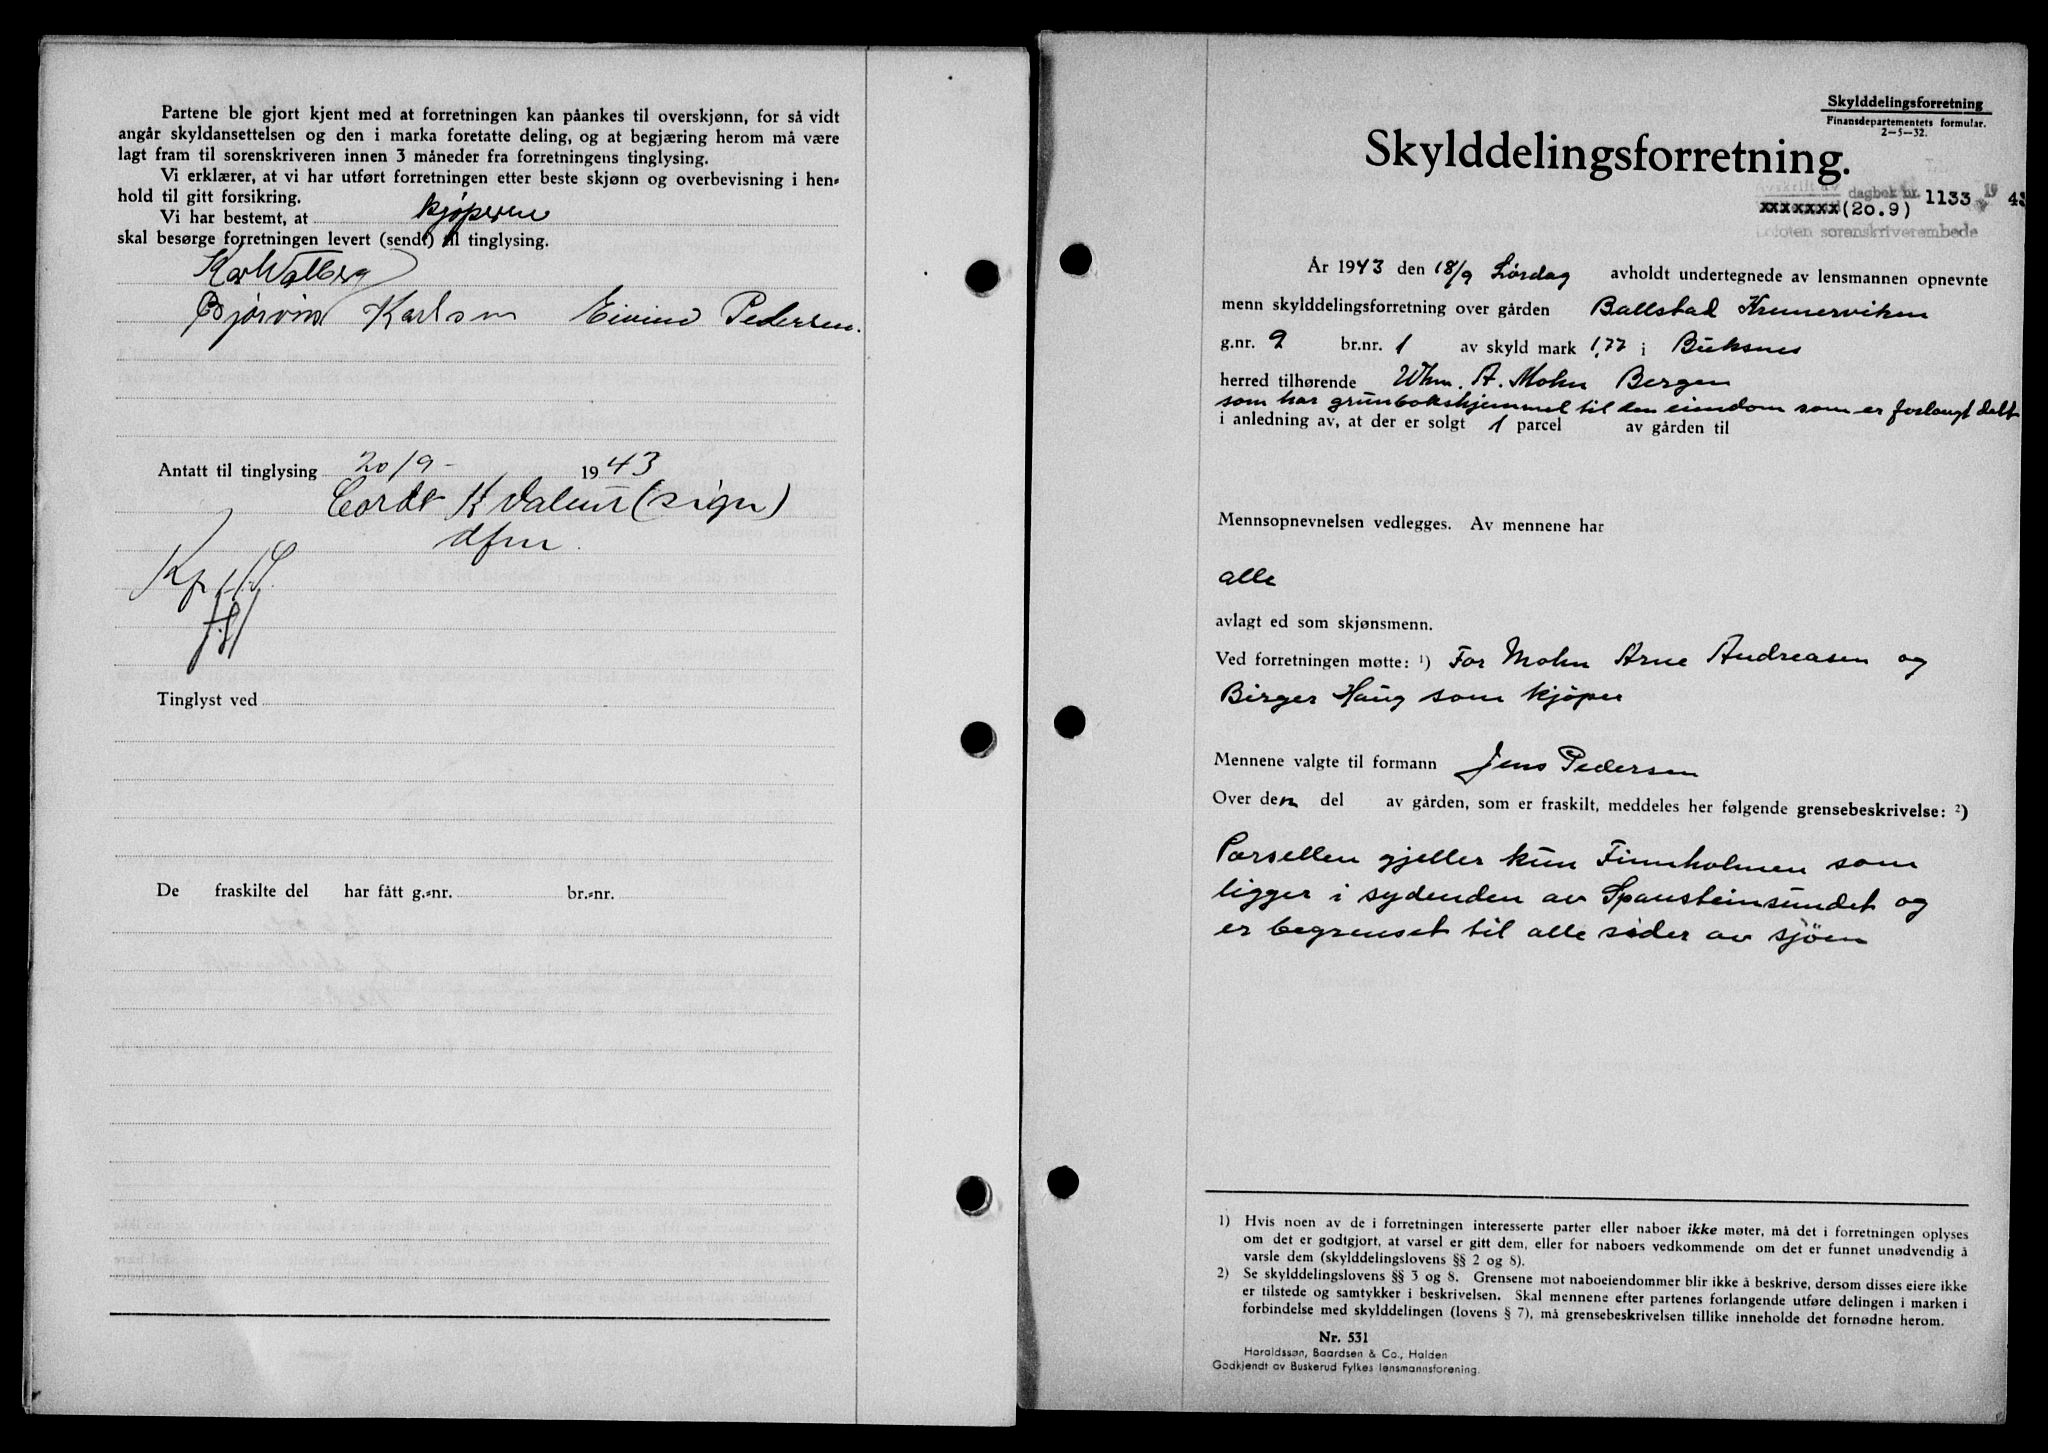 Partene ble gjort kjent med at forretningen kan påankes til overskjønn, for så vidt
angår skyldansettelsen og den i marka foretatte deling, og at begjæring herom må være
lagt fram til sorenskriveren innen 3 måneder fra forretningens tinglysing.
Vi erklærer, at vi har utført forretningen etter beste skjønn og overbevisning i hen-
hold til gitt forsikring.
Vi har bestemt, at kjøperen
skal besørge forretningen levert (sendt) til tinglysing.
Kar Walberg
Bjørvin Karlsen Eivind Pedersen.
Antatt til tinglysing 20/9- 1943
Cordt K Valeur (sign)
dfm
Tinglyst ved
De fraskilte del har fått g.-nr. br.-nr.
Skylddelingsforretning
Finansdepartementets formular.
2-5-32.
Skylddelingsforretning.
Avskrift av dagbok nr. 1133 1943
xxxxxxx (20.9)
Lofoten sorenskriverembede
År 1943 den 18/9 Lørdag avholdt undertegnede av lensmannen opnevnte
menn skylddelingsforretning over gården Ballstad Kremerviken
g.nr. 9 br.nr. 1 av skyld mark 1,77 i Buksnes
herred tilhørende Whm. A. Mohn Bergen
som har grunbokshjemmel til den eiendom som er forlangt delt
i anledning av, at der er solgt 1 parcel av gården til
Mennsopnevnelsen vedlegges. Av mennene har
alle
avlagt ed som skjønsmenn.
Ved forretningen møtte: 1) For Mohn Arne Andreasen og
Birger Haug som kjøper
Mennene valgte til formann Jens Pedersen
Over den del av gården, som er fraskilt, meddeles her følgende grensebeskrivelse: 2)
Parsellen gjeller kun Finnholmen som
ligger i sydenden av Spansteinsundet og
er begrenset til alle sider av sjöen
1) Hvis noen av de i forretningen interesserte parter eller naboer ikke møter, må det i forretningen oplyses
om det er godtgjort, at varsel er gitt dem, eller for naboers vedkommende om det er funnet unødvendig å
varsle dem (skylddelingslovens §§ 2 og 8).
2) Se skylddelingslovens §§ 3 og 8. Grensene mot naboeiendommer blir ikke å beskrive, dersom disses eiere ikke
er tilstede og samtykker i beskrivelsen. Skal mennene efter partenes forlangende utføre delingen i marken i
forbindelse med skylddelingen (lovens § 7), må grensebeskrivelsen tillike inneholde det fornødne herom.
Nr. 531
Haraldssøn, Baardsen & Co., Halden
Godkjendt av Buskerud Fylkes lensmannsforening.